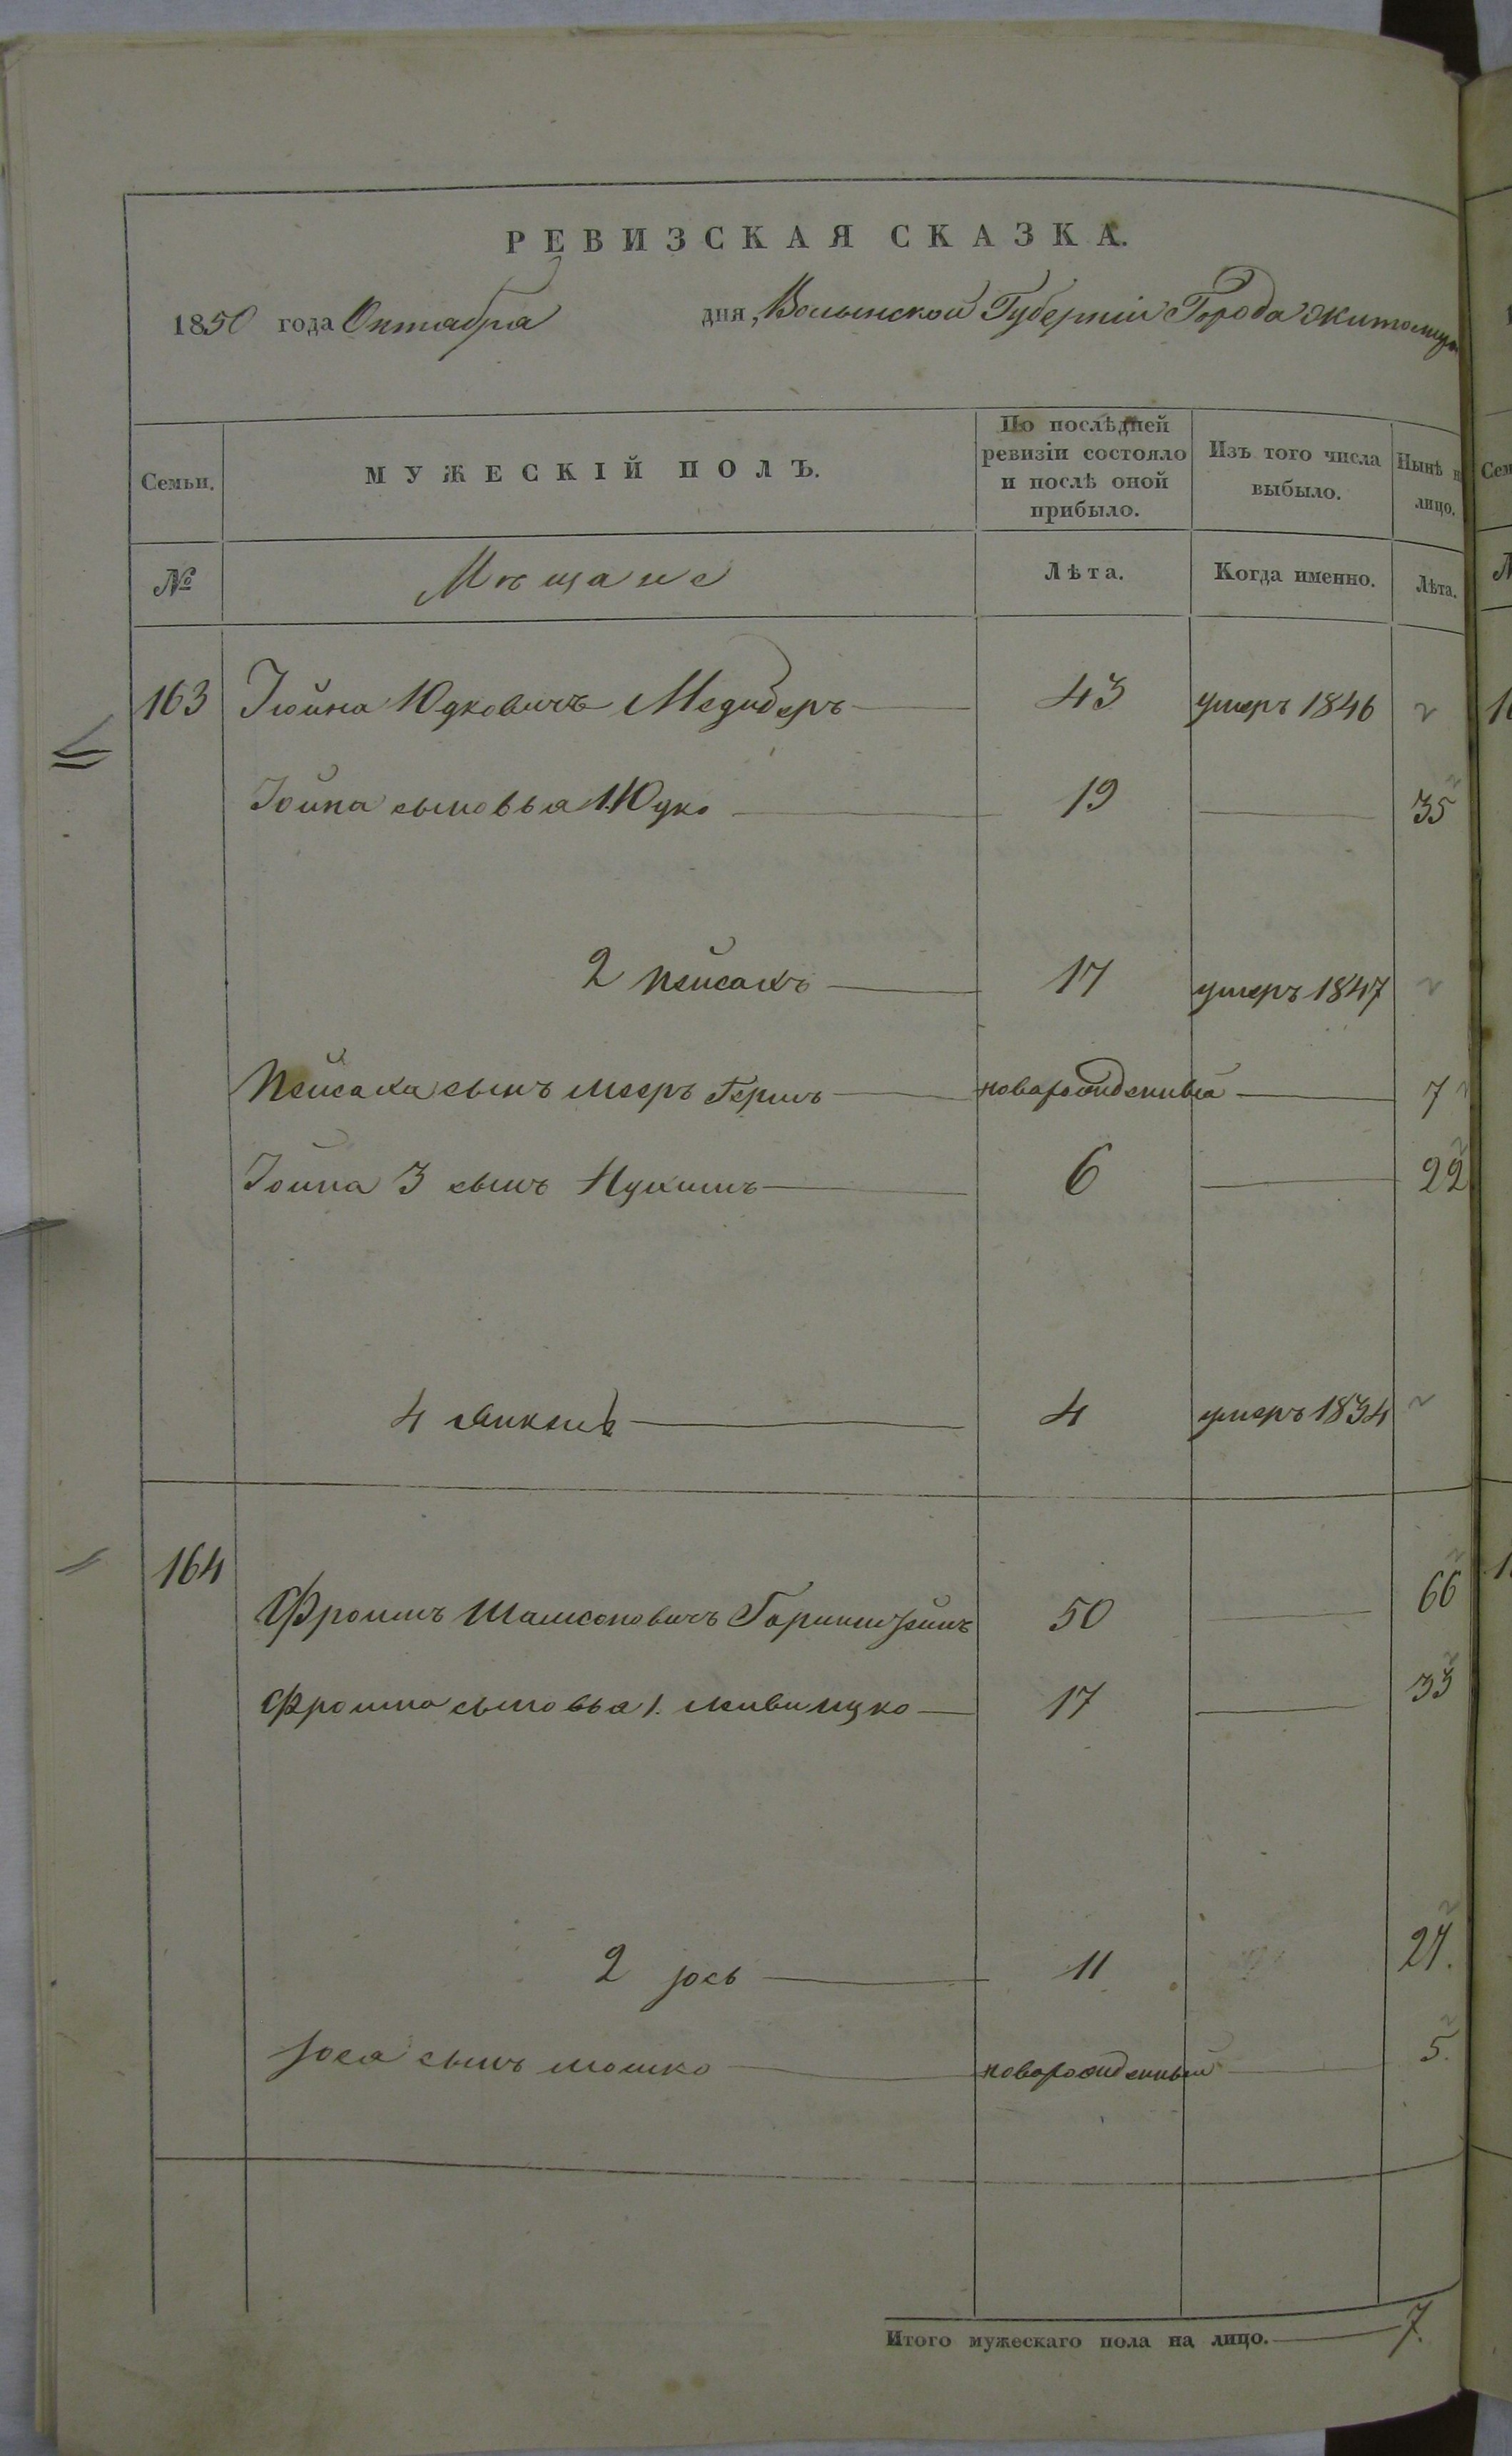 РЕВИЗСКАЯ СКАЗКА.
1850 года Октабра дня, Волынской Губерніи Города Житомира
Семьи. МУЖЕСКІЙ ПОЛЪ. По послѣдней ревизіи состояло и послѣ оной прибыло. Изъ того числа выбыло. Нынѣ н лицо.
№ Мѣщане Лѣта. Когда именно. Лѣта.
163 Іойна Юдковичъ Медидеръ 43 умеръ 1846
Іойна сыновья 1. Юдко 19 35
2 Пейсахъ 17 умеръ 1847
Пейсаха сынъ Мееръ Гершъ новарожденный 7
Іойна 3 сынъ Нухимъ 6 22
4 Янкель 4 умеръ 1834
164
Фроимъ Шамсоновичъ 50 66
Фроима сыновья 1. 17 33
2 Іось 11 27.
Іося сынъ Мошко новорожденный 5.
Итого мужескаго пола на лицо. 7.